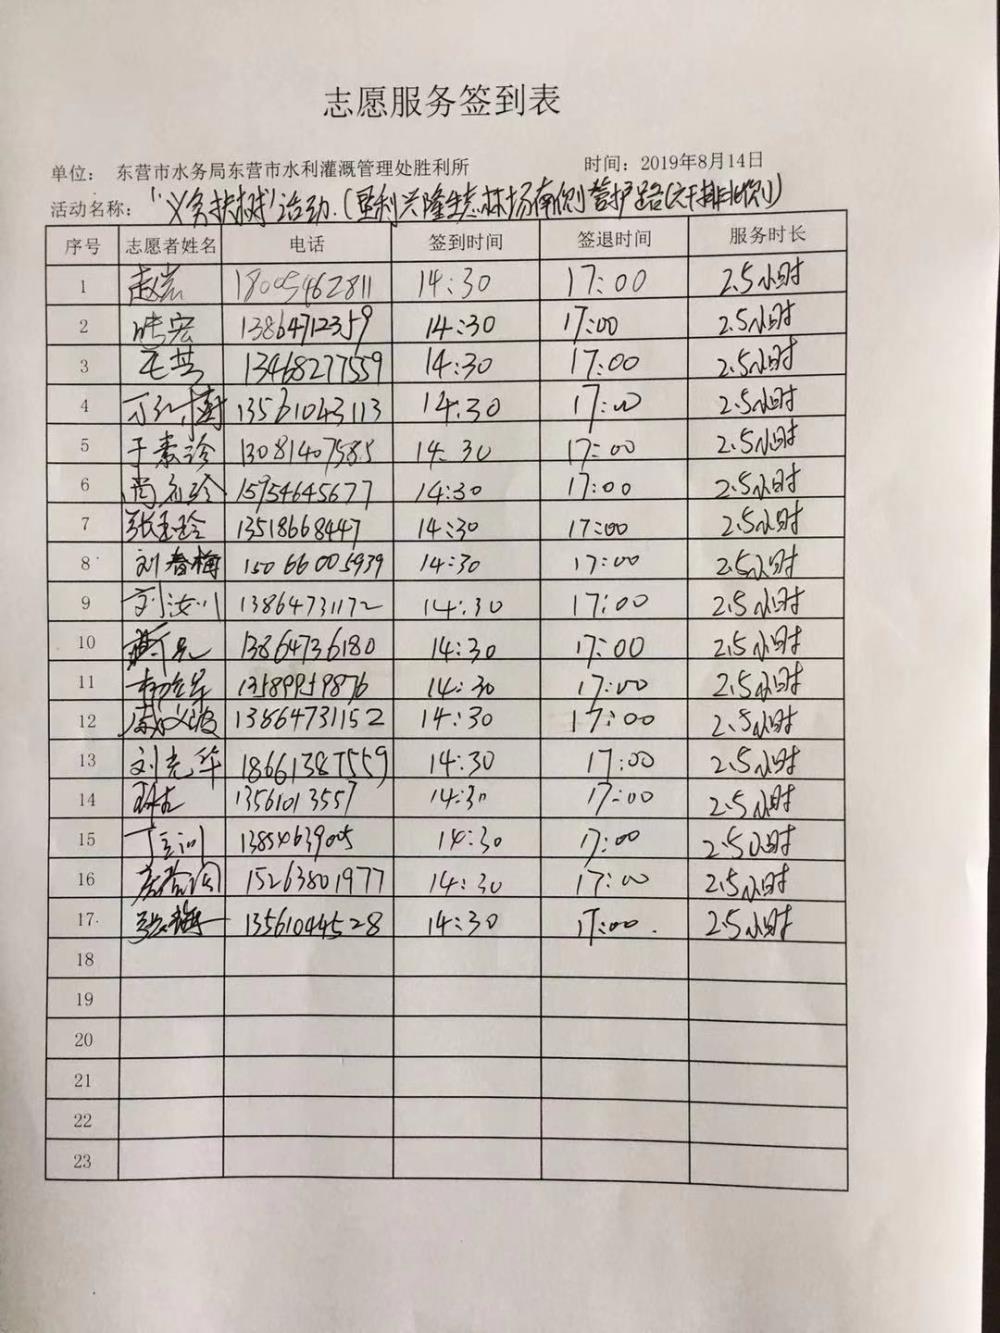 志愿服务签到表
单位: 东营市水务局东营市水利灌溉管理处胜利所 时间: 2019年8月14日
活动名称: "义务扶树"活动.(垦利兴隆生态林场南侧管护路(六干排北侧)
序号 志愿者姓名 电话 签到时间 签退时间 服务时长
1 18005462811 14:30 17:00 2.5小时
2 13864712359 14:30 17:00 2.5小时
3 13468277559 14:30 17:00 2.5小时
4 13561043113 14:30 17:00 2.5小时
5 于素珍 13081407585 14:30 17:00 2.5小时
6 15954645677 14:30 17:00 2.5小时
7 张玉玲 13518668447 14:30 17:00 2.5小时
8 刘春梅 15066005939 14:30 17:00 2.5小时
9 刘汝川 13864731172 14:30 17:00 2.5小时
10 13864736180 14:30 17:00 2.5小时
11 13589959876 14:30 17:00 2.5小时
12 13864731152 14:30 17:00 2.5小时
13 刘光华 18661387559 14:30 17:00 2.5小时
14 13561013557 14:30 17:00 2.5小时
15 14:30 17:00 2.5小时
16 15263801977 14:30 17:00 2.5小时
17 张梅 13561044528 14:30 17:00. 2.5小时
18
19
20
21
22
23